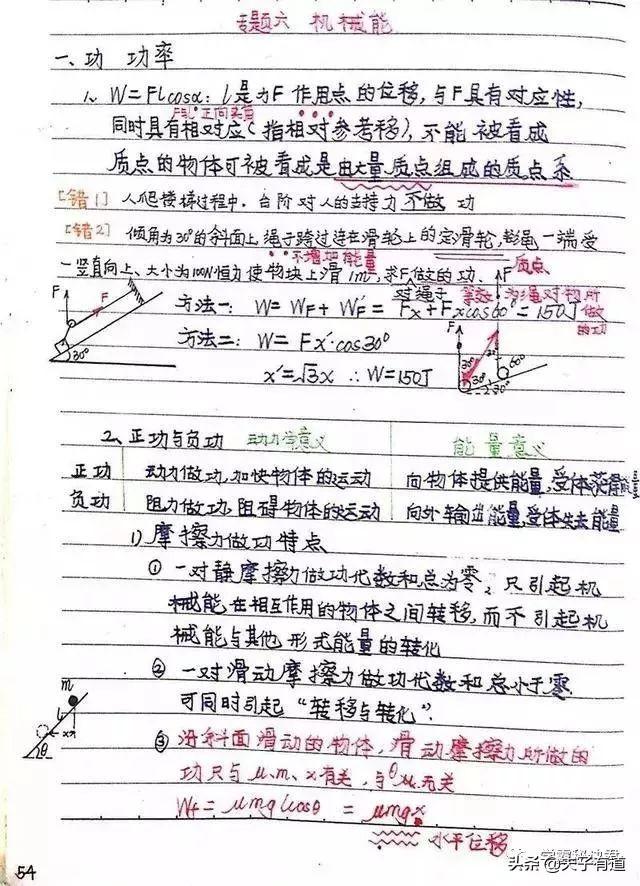 专题六 机械能
一、功 功率
1、W=Flcosα：l是力F作用点的位移，与F具有对应性，
F与l正向夹角
同时具有相对应（指相对参考移），不能被看成
质点的物体可被看成是由大量质点组成的质点系
[错1] 人爬楼梯过程中，台阶对人的支持力不做功
不增加能量
[错2] 倾角为30°的斜面上，绳子跨过连在滑轮上的定滑轮，绳一端受
质点
一竖直向上、大小为100N恒力使物块上滑1m，求F做的功.
对绳子 等效：为绳对物所做的功
方法一：W=WF+WF'=Fx+Fxcos60°=150J
方法二：W=Fx'·cos30°
x'=√3x ∴W=150J
F F 30°
F F 30° 30° 60°
2、正功与负功 动力学意义 能量意义
正功 动力做功，加快物体的运动 向物体提供能量，受体获得能量
负功 阻力做功，阻碍物体的运动 向外输出能量，受体失去能量
1) 摩擦力做功特点
① 一对静摩擦力做功代数和总为零，只引起机
械能在相互作用的物体之间转移，而不引起机
械能与其他形式能量的转化
② 一对滑动摩擦力做功代数和总小于零
可同时引起“转移与转化”.
m l x θ
③ 沿斜面滑动的物体，滑动摩擦力所做的
功只与μ、m、x有关，与θ无关
Wf=μmglcosθ = μmgx
水平位移
54
学霸秘决君
头条@天子有道